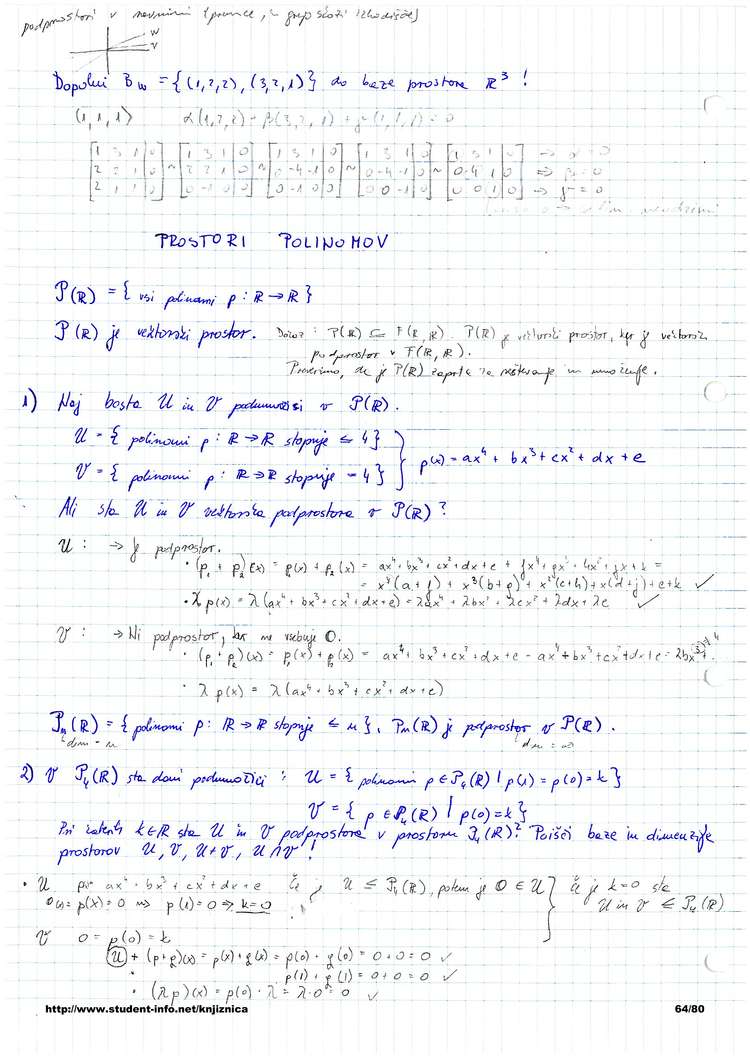 podprostori v ravnini (premice, ki grejo skozi izhodišče)
W
V
Dopolni B_W = {(1,2,2), (3,2,1)} do baze prostora ℝ³ !
(1,1,1) α(1,2,2) + β(3,2,1) + γ(1,1,1) = 0
[1 3 1|0] [1 3 1|0] [1 3 1|0] [1 3 1|0] [1 3 1|0] → α = 0
[2 2 1|0] ~ [2 2 1|0] ~ [0 -4 -1|0] ~ [0 -4 -1|0] ~ [0 -4 1|0] ⇒ β = 0
[2 1 1|0] [0 -1 0|0] [0 -1 0|0] [0 0 -1|0] [0 0 1|0] ⇒ γ = 0
PROSTORI POLINOMOV
P(ℝ) = { vsi polinomi p : ℝ → ℝ }
P(ℝ) je vektorski prostor. Dokaz : P(ℝ) ⊆ F(ℝ,ℝ). P(ℝ) je vektorski prostor, ker je vektorski
podprostor v F(ℝ,ℝ).
Preverimo, da je P(ℝ) zaprta za seštevanje in množenje.
1) Naj bosta U in V podmnožici v P(ℝ).
U = { polinomi p : ℝ → ℝ stopnje ≤ 4 }
V = { polinomi p : ℝ → ℝ stopnje = 4 } } p(x) = ax⁴ + bx³ + cx² + dx + e
Ali sta U in V vektorska podprostora v P(ℝ) ?
U : → Je podprostor.
• (p₁ + p₂)(x) = p₁(x) + p₂(x) = ax⁴ + bx³ + cx² + dx + e + fx⁴ + gx³ + hx² + jx + k =
= x⁴(a+f) + x³(b+g) + x²(c+h) + x(d+j) + e+k ✓
• λ p(x) = λ(ax⁴ + bx³ + cx² + dx + e) = λax⁴ + λbx³ + λcx² + λdx + λe ✓
V : → Ni podprostor, ker ne vsebuje 0.
• (p₁ + p₂)(x) = p₁(x) + p₂(x) = ax⁴ + bx³ + cx² + dx + e - ax⁴ + bx³ + cx² + dx + e = 2bx³ +
• λ p(x) = λ(ax⁴ + bx³ + cx² + dx + e)
Pₙ(ℝ) = { polinomi p : ℝ → ℝ stopnje ≤ n }, Pₙ(ℝ) je podprostor v P(ℝ).
dim = n dim = ∞
2) V P₄(ℝ) sta dani podmnožici : U = { polinomi p ∈ P₄(ℝ) | p(1) = p(0) = k }
V = { p ∈ P₄(ℝ) | p(0) = k }
Pri katerih k ∈ ℝ sta U in V podprostora v prostoru P₄(ℝ)? Poišči baze in dimenzije
prostorov U, V, U+V, U∩V !
• U ax⁴ + bx³ + cx² + dx + e Če je U ≤ P₄(ℝ), potem je 0 ∈ U } Če je k=0 sta
0(x) = p(x) = 0 ⇒ p(1) = 0 ⇒ k=0 U in V ≤ P₄(ℝ)
V 0 = p(0) = k
U + (p+g)(x) = p(x) + g(x) = p(0) + g(0) = 0 + 0 = 0 ✓
• p(1) + g(1) = 0 + 0 = 0 ✓
• (λp)(x) = p(0) · λ = λ·0 = 0 ✓
http://www.student-info.net/knjiznica 64/80